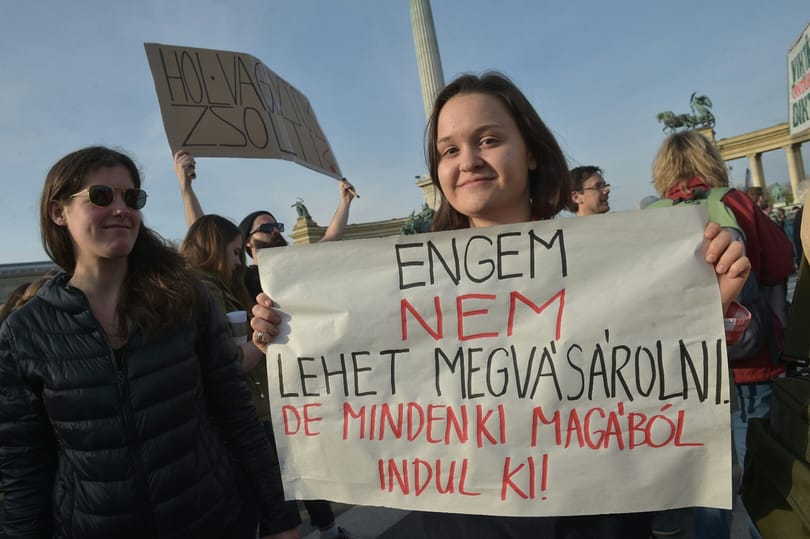 HOL VAGY
ZSOLTI
ENGEM
NEM
LEHET MEGVÁSÁROLNI.
DE MINDENKI MAGÁBÓL
INDUL KI!